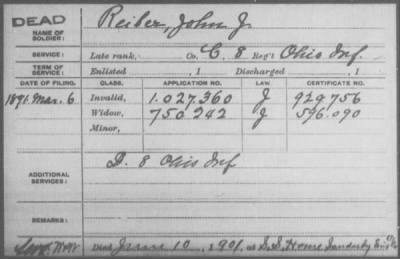 DEAD
NAME OF SOLDIER: Reiber, John J.
SERVICE: Late rank, Co. C, 8 Reg't Ohio Inf.
TERM OF SERVICE: Enlisted , 1 Discharged , 1
DATE OF FILING. CLASS. APPLICATION NO. LAW. CERTIFICATE NO.
1891. Mar. 6 Invalid, 1.027.360 J 929.756
Widow, 750.242 J 596.090
Minor,
ADDITIONAL SERVICES: D. 8 Ohio Inf
REMARKS:
Died June 10, 1901, at S.S. Home